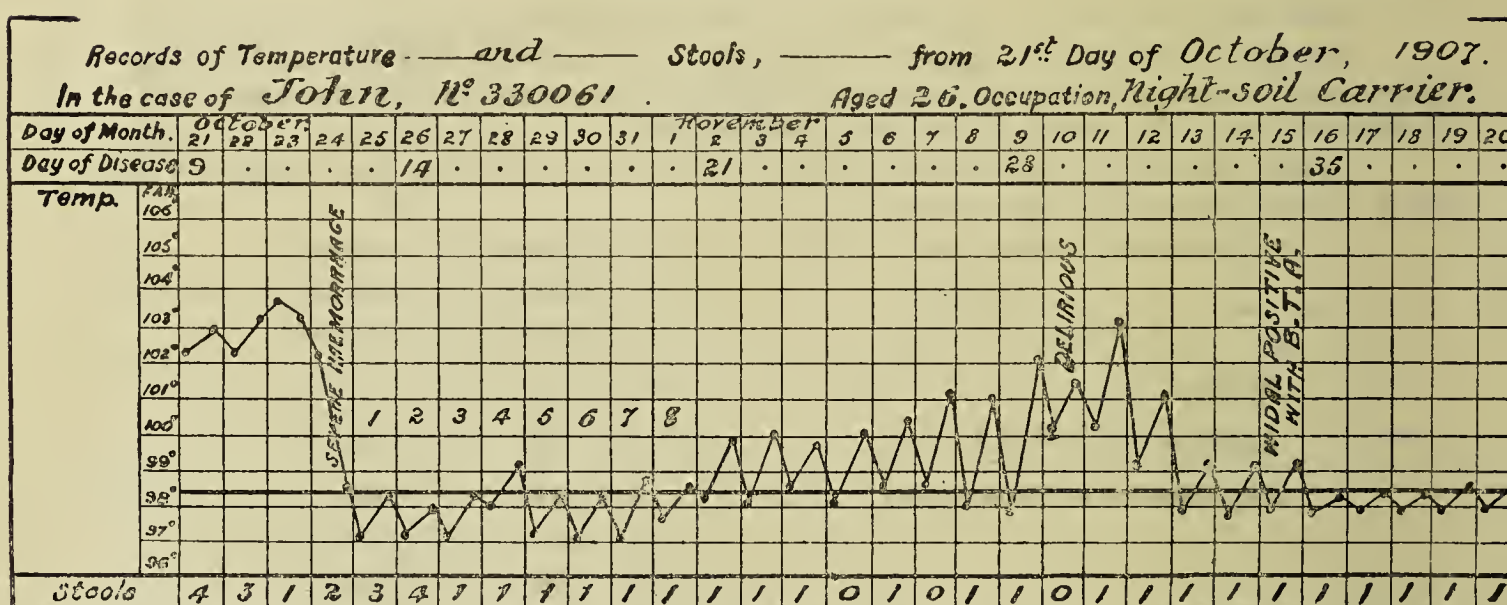 Records of Temperature — and — Stools, — from 21st Day of October, 1907.
In the case of John, No 330061. Aged 26. Occupation, Night-soil Carrier.
Day of Month. October. November
21 22 23 24 25 26 27 28 29 30 31 1 2 3 4 5 6 7 8 9 10 11 12 13 14 15 16 17 18 19 20
Day of Disease 9 . . . . 14 . . . . . . 21 . . . . . . 28 . . . . . . 35 . . . .
Temp. FAH.
106°
105°
104°
103°
102°
101°
100°
99°
98°
97°
96°
SEVERE HAEMORRHAGE
1 2 3 4 5 6 7 8
DELIRIOUS
WIDAL POSITIVE
WITH B.T.A.
Stools 4 3 1 2 3 4 1 1 1 1 1 1 1 1 1 0 1 0 1 1 0 1 1 1 1 1 1 1 1 1 1